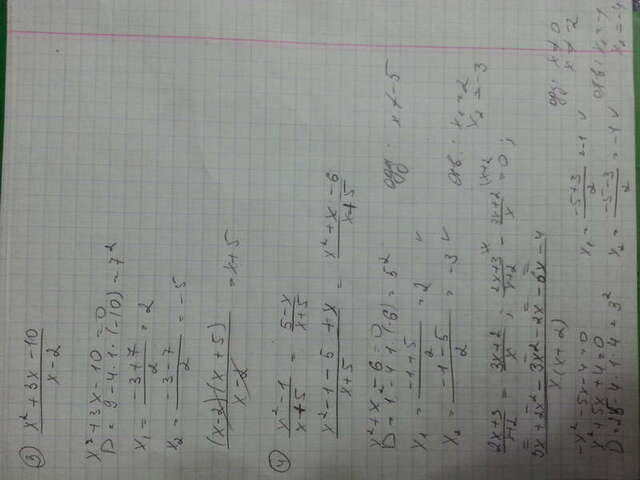 ③ (x² + 3x - 10)/(x - 2)
x² + 3x - 10 = 0
D = 9 - 4·1·(-10) = 7²
x₁ = (-3+7)/2 = 2
x₂ = (-3-7)/2 = -5
((x-2)(x+5))/(x-2) = x+5
④ (x² - 1)/(x+5) = (5-x)/(x+5)
(x² - 1 - 5 + x)/(x+5) = (x² + x - 6)/(x+5)
x² + x - 6 = 0 одз: x ≠ -5
D = 1 - 4·1·(-6) = 5²
x₁ = (-1+5)/2 = 2 ∨
x₂ = (-1-5)/2 = -3 ∨ отв: x₁ = 2 x₂ = -3
(2x+3)/(x+2) = (3x+2)/x ; (2x+3)/(x+2) - (3x+2)/x = 0 ;
(3x + 2x² - 3x² - 2x - 6x - 4)/(x(x+2))
-x² - 5x - 4 = 0 одз: x ≠ 0
x² + 5x + 4 = 0 x ≠ 2
D = 25 - 4·1·4 = 3²
x₁ = (-5+3)/2 = -1 ∨ отв: x₁ = -1
x₂ = (-5-3)/2 = -4 ∨ x₂ = -4